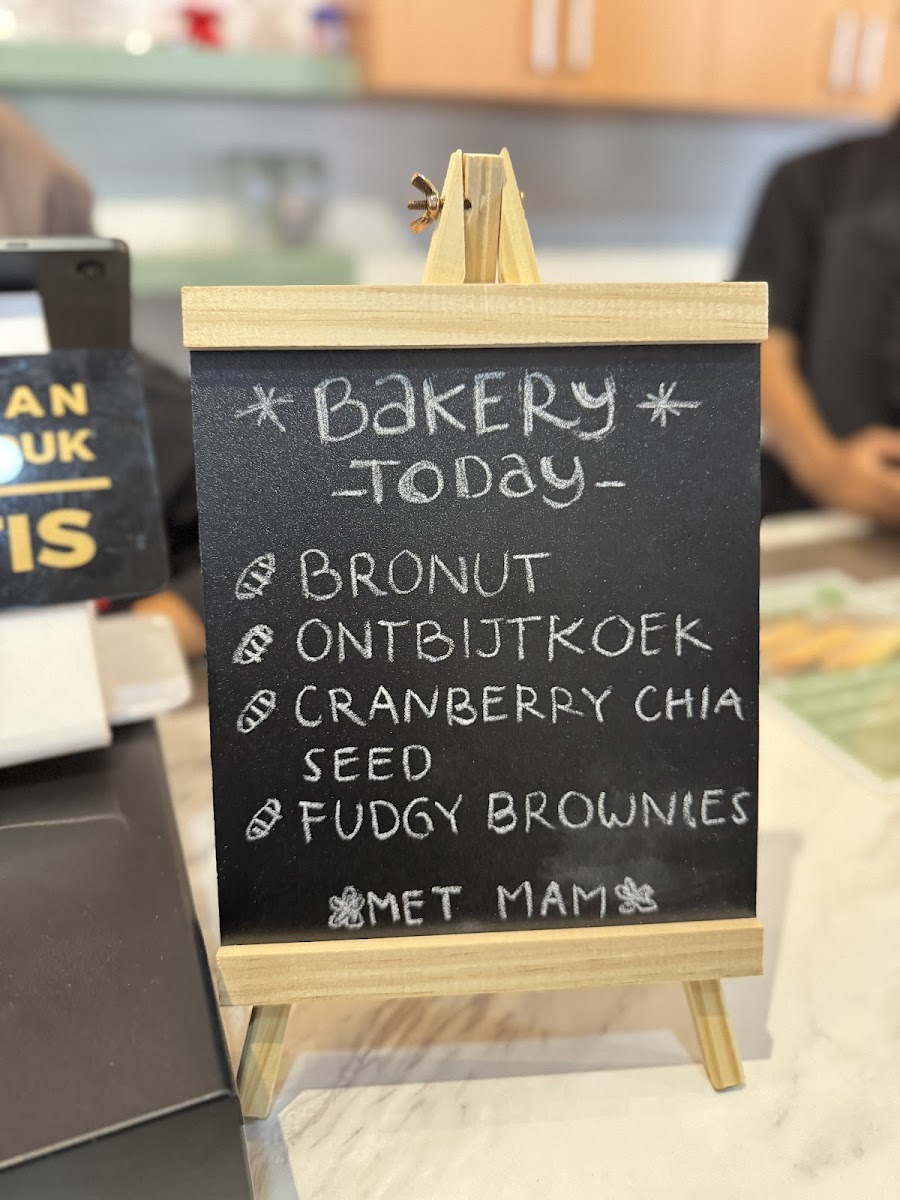 BAKERY
-TODAY-
BRONUT
ONTBIJTKOEK
CRANBERRY CHIA
SEED
FUDGY BROWNIES
MET MAM
AN
UK
IS